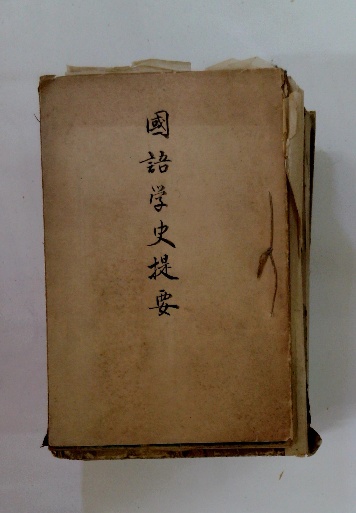 國語学史提要